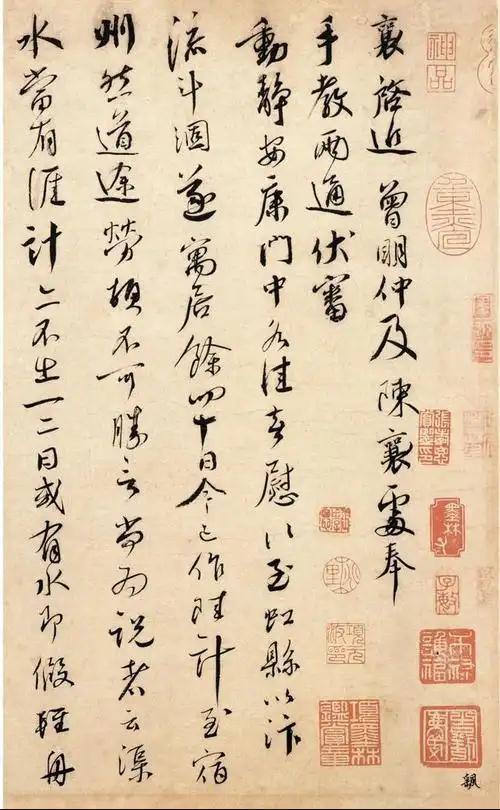 襄啓近 曾明仲及 陳襄處奉
手教兩通伏審
動靜安康門中各佳喜慰至虹縣以汴
流斗涸遂寓居餘四十日今已作陸計至宿
州然道途勞頓不可勝言尚為說者云渠
水當有涯計亦不出一二日或有水即假輕舟
神品
項墨林鑑賞章